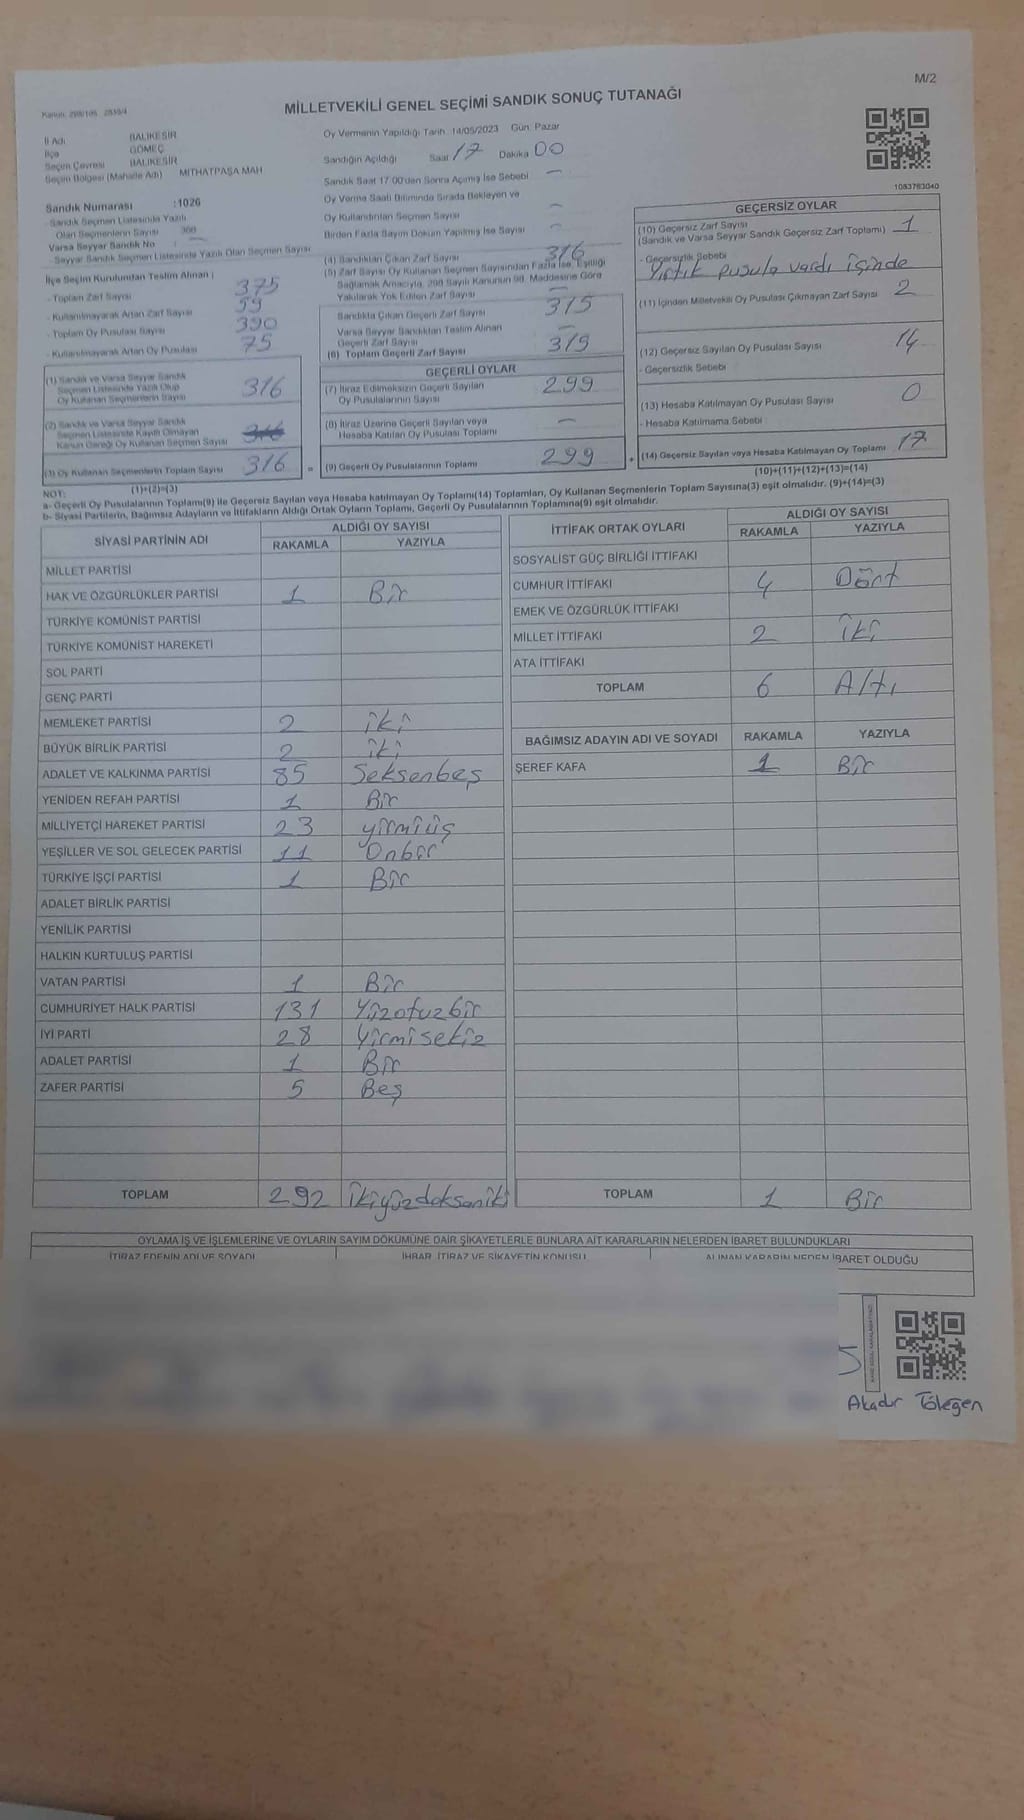 M/2
MİLLETVEKİLİ GENEL SEÇİMİ SANDIK SONUÇ TUTANAĞI
İl Adı BALIKESİR
İlçe GÖMEÇ
Seçim Çevresi BALIKESİR
Seçim Bölgesi (Mahalle Adı) MİTHATPAŞA MAH
Sandık Numarası :1026
- Sandık Seçmen Listesinde Yazılı
Olan Seçmenlerin Sayısı
Varsa Seyyar Sandık No : —
- Seyyar Sandık Seçmen Listesinde Yazılı Olan Seçmen Sayısı
İlçe Seçim Kurulundan Teslim Alınan ;
- Toplam Zarf Sayısı 375
- Kullanılmayarak Artan Zarf Sayısı 59
- Toplam Oy Pusulası Sayısı 390
- Kullanılmayarak Artan Oy Pusulası 75
(1) Sandık ve Varsa Seyyar Sandık
Seçmen Listesinde Yazılı Olup
Oy Kullanan Seçmenlerin Sayısı 316
(2) Sandık ve Varsa Seyyar Sandık
Seçmen Listesinde Kayıtlı Olmayan
Kanun Gereği Oy Kullanan Seçmen Sayısı 316
(3) Oy Kullanan Seçmenlerin Toplam Sayısı 316 =
(1)+(2)=(3)
Oy Vermenin Yapıldığı Tarih: 14/05/2023 Gün: Pazar
Sandığın Açıldığı Saat 17 Dakika 00
Sandık Saat 17:00'den Sonra Açılmış İse Sebebi —
Oy Verme Saati Bitiminde Sırada Bekleyen ve
Oy Kullandırılan Seçmen Sayısı —
Birden Fazla Sayım Döküm Yapılmış İse Sayısı —
(4) Sandıktan Çıkan Zarf Sayısı 316
(5) Zarf Sayısı Oy Kullanan Seçmen Sayısından Fazla İse, Eşitliği
Sağlamak Amacıyla, 298 Sayılı Kanunun 98. Maddesine Göre
Yakılarak Yok Edilen Zarf Sayısı —
Sandıkta Çıkan Geçerli Zarf Sayısı 315
Varsa Seyyar Sandıktan Teslim Alınan
Geçerli Zarf Sayısı —
(6) Toplam Geçerli Zarf Sayısı 315
GEÇERLİ OYLAR
(7) İtiraz Edilmeksizin Geçerli Sayılan
Oy Pusulalarının Sayısı 299
(8) İtiraz Üzerine Geçerli Sayılan veya
Hesaba Katılan Oy Pusulası Toplamı —
(9) Geçerli Oy Pusulalarının Toplamı 299 +
1083763040
GEÇERSİZ OYLAR
(10) Geçersiz Zarf Sayısı 1
(Sandık ve Varsa Seyyar Sandık Geçersiz Zarf Toplamı)
- Geçersizlik Sebebi
Yırtık pusula vardı içinde
(11) İçinden Milletvekili Oy Pusulası Çıkmayan Zarf Sayısı 2
(12) Geçersiz Sayılan Oy Pusulası Sayısı 14
- Geçersizlik Sebebi
(13) Hesaba Katılmayan Oy Pusulası Sayısı 0
- Hesaba Katılmama Sebebi
(14) Geçersiz Sayılan veya Hesaba Katılmayan Oy Toplamı 17
(10)+(11)+(12)+(13)=(14)
NOT:
a- Geçerli Oy Pusulalarının Toplamı(9) ile Geçersiz Sayılan veya Hesaba katılmayan Oy Toplamı(14) Toplamları, Oy Kullanan Seçmenlerin Toplam Sayısına(3) eşit olmalıdır. (9)+(14)=(3)
b- Siyasi Partilerin, Bağımsız Adayların ve İttifakların Aldığı Ortak Oyların Toplamı, Geçerli Oy Pusulalarının Toplamına(9) eşit olmalıdır.
SİYASİ PARTİNİN ADI ALDIĞI OY SAYISI
RAKAMLA YAZIYLA
MİLLET PARTİSİ
HAK VE ÖZGÜRLÜKLER PARTİSİ 1 Bir
TÜRKİYE KOMÜNİST PARTİSİ
TÜRKİYE KOMÜNİST HAREKETİ
SOL PARTİ
GENÇ PARTİ
MEMLEKET PARTİSİ 2 iki
BÜYÜK BİRLİK PARTİSİ 2 iki
ADALET VE KALKINMA PARTİSİ 85 Seksenbeş
YENİDEN REFAH PARTİSİ 1 Bir
MİLLİYETÇİ HAREKET PARTİSİ 23 yirmiüş
YEŞİLLER VE SOL GELECEK PARTİSİ 11 Onbir
TÜRKİYE İŞÇİ PARTİSİ 1 Bir
ADALET BİRLİK PARTİSİ
YENİLİK PARTİSİ
HALKIN KURTULUŞ PARTİSİ
VATAN PARTİSİ 1 Bir
CUMHURİYET HALK PARTİSİ 131 Yüzotuzbir
İYİ PARTİ 28 Yirmisekiz
ADALET PARTİSİ 1 Bir
ZAFER PARTİSİ 5 Beş
TOPLAM 292 İkiyüzdoksaniki
İTTİFAK ORTAK OYLARI ALDIĞI OY SAYISI
RAKAMLA YAZIYLA
SOSYALİST GÜÇ BİRLİĞİ İTTİFAKI
CUMHUR İTTİFAKI 4 Dört
EMEK VE ÖZGÜRLÜK İTTİFAKI
MİLLET İTTİFAKI 2 İki
ATA İTTİFAKI
TOPLAM 6 Altı
BAĞIMSIZ ADAYIN ADI VE SOYADI RAKAMLA YAZIYLA
ŞEREF KAFA 1 Bir
TOPLAM 1 Bir
OYLAMA İŞ VE İŞLEMLERİNE VE OYLARIN SAYIM DÖKÜMÜNE DAİR ŞİKAYETLERLE BUNLARA AİT KARARLARIN NELERDEN İBARET BULUNDUKLARI
İTİRAZ EDENİN ADI VE SOYADI İHBAR, İTİRAZ VE ŞİKAYETİN KONUSU ALINAN KARARIN NEDEN İBARET OLDUĞU
5